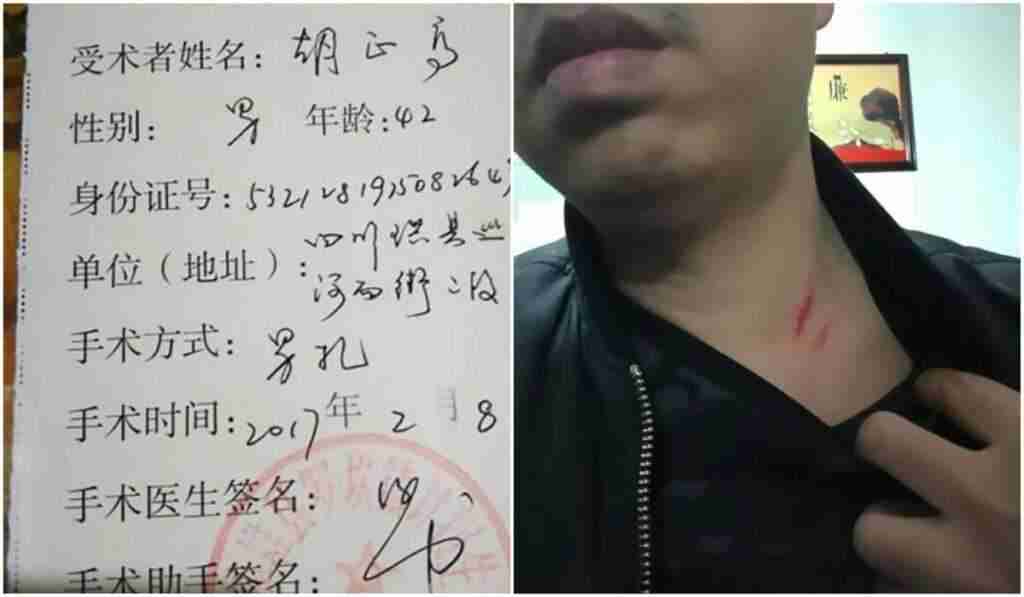 受术者姓名: 胡正高
性别: 男 年龄:42
身份证号: 532128197508264
单位(地址): 四川珙县
河西街二段
手术方式: 男扎
手术时间: 2017年2月8
手术医生签名:
手术助手签名: